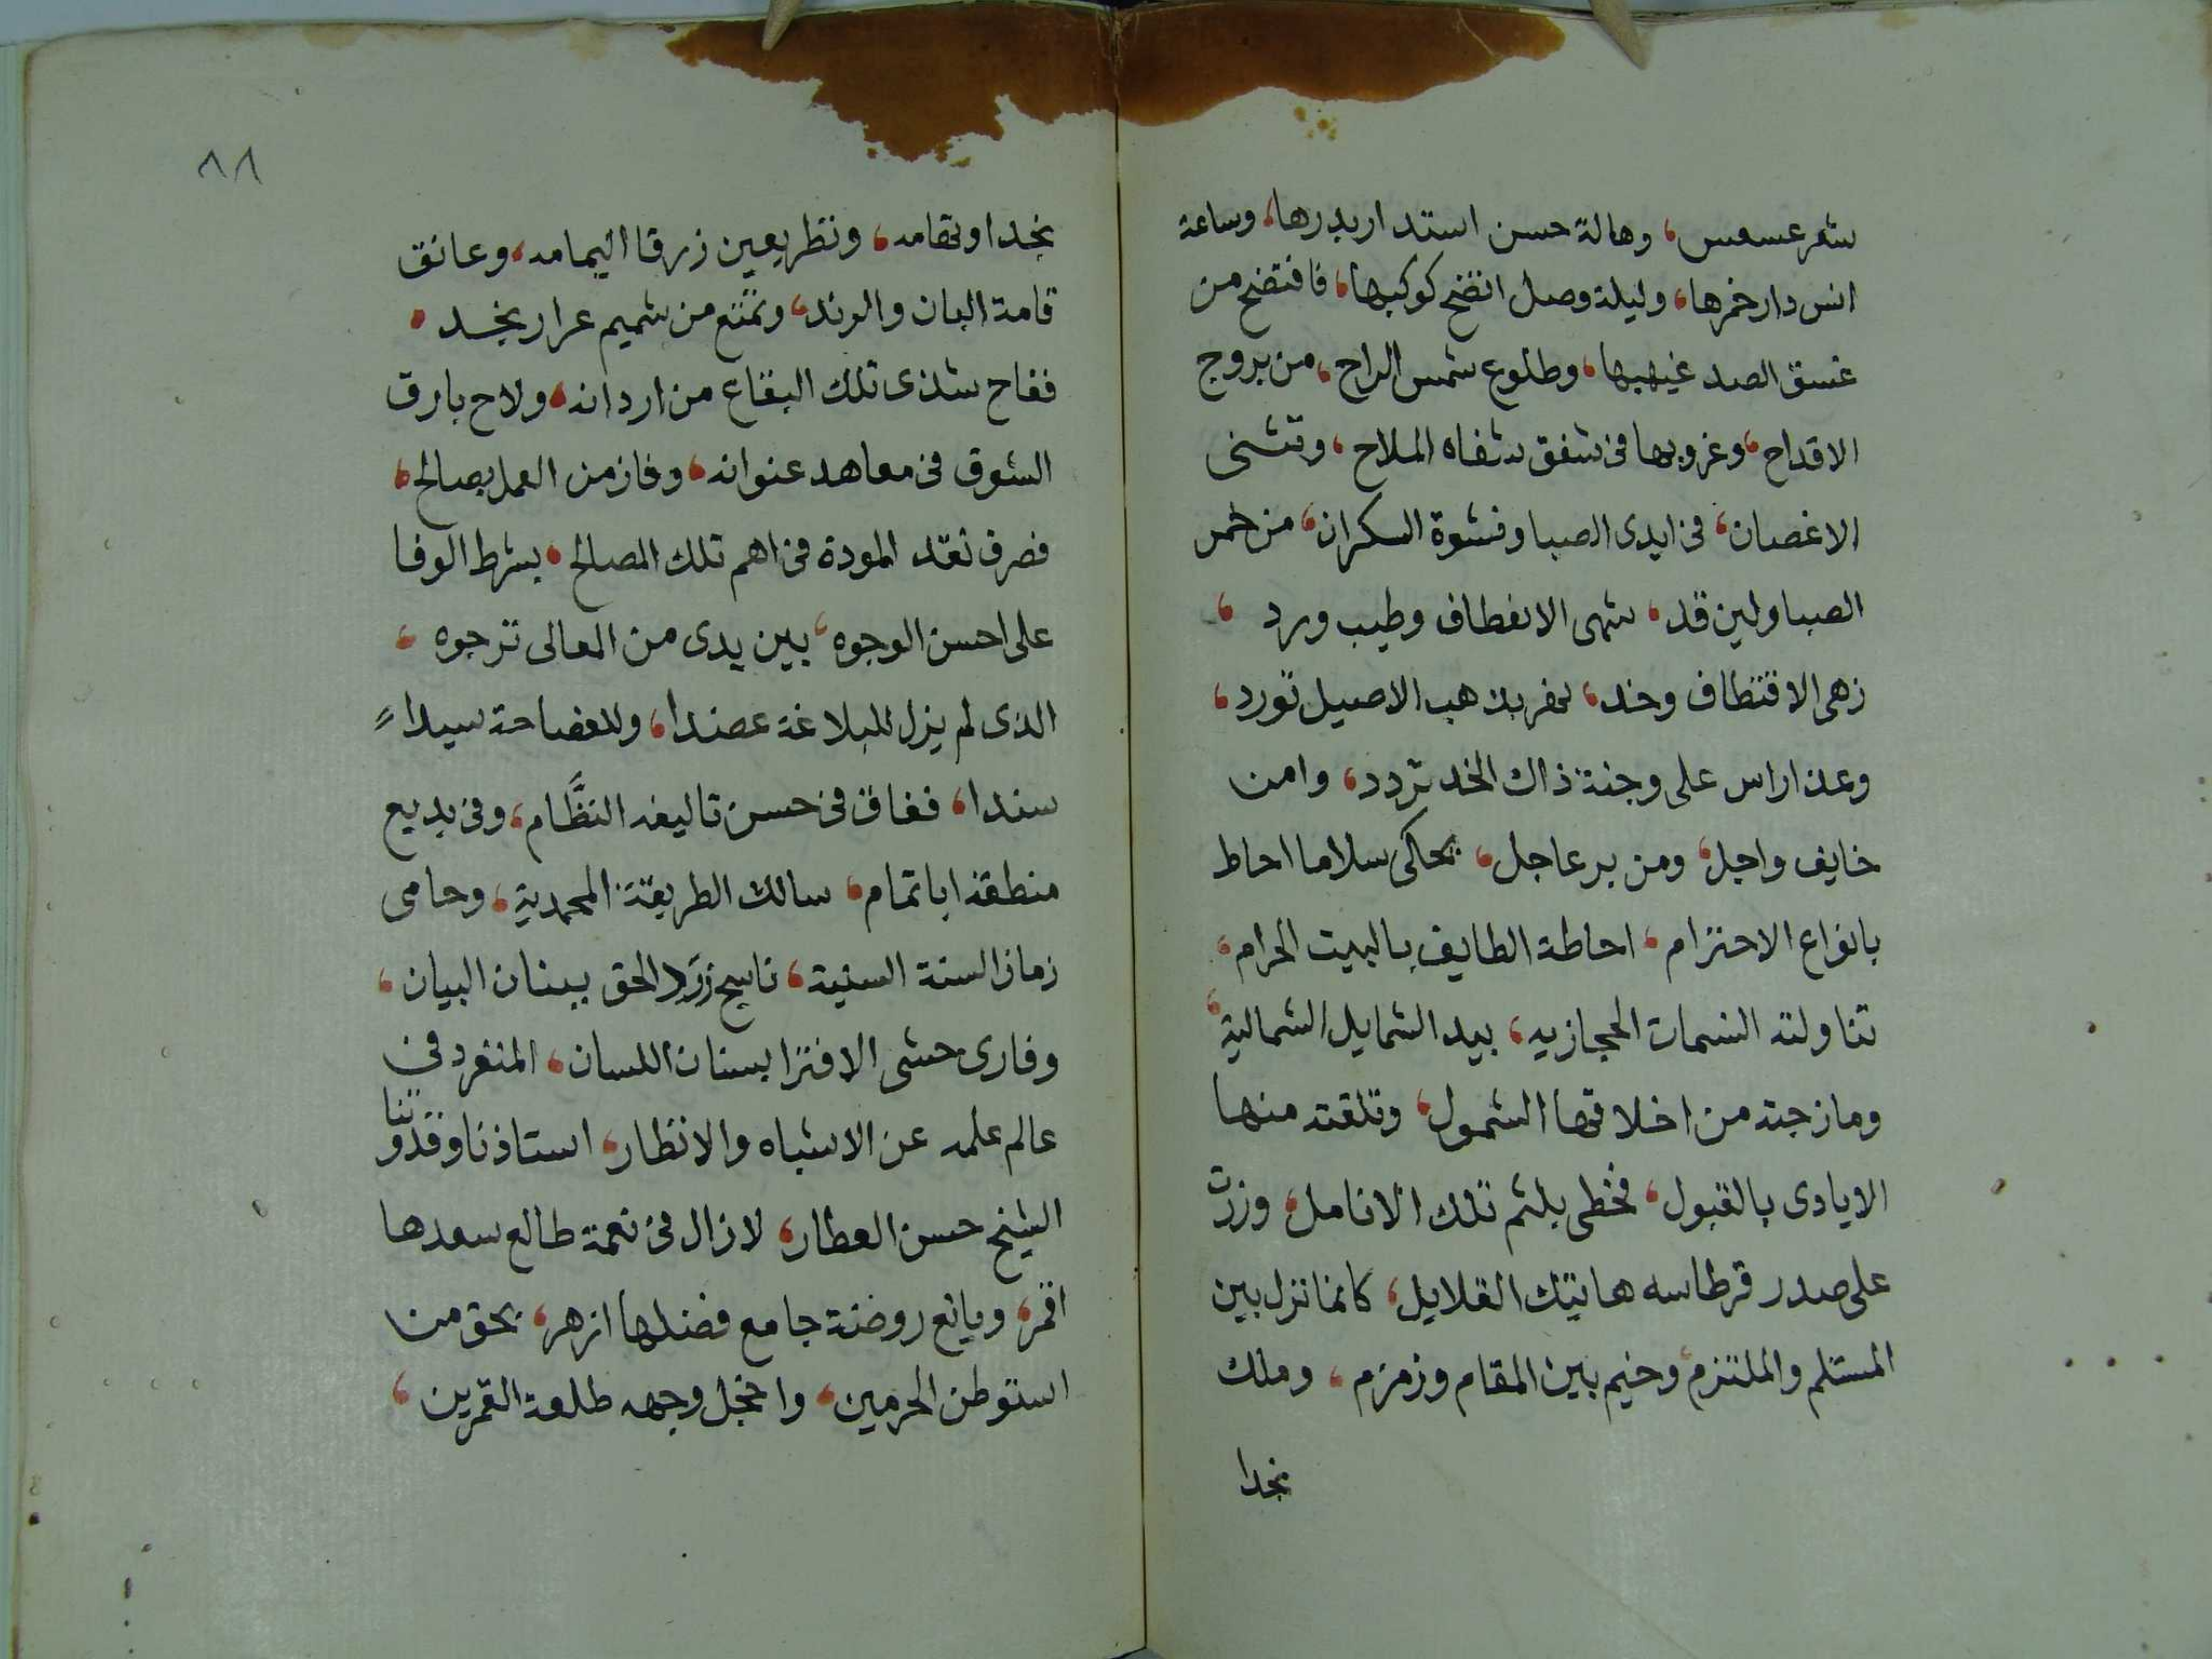 شعر عسعس، وهالة حسن استدار بدرها، وساعة
انس دار خمرها، وليلة وصل اتضح كوكبها، فافتضح من
غسق الصد غيهبها، وطلوع شمس الراح، من بروج
الاقداح، وغروبها فى شفق شفاه الملاح، وتثنى
الاغصان، فى ايدى الصبا ونشوة السكران، من خمر
الصبا ولين قد، شهى الانعطاف وطيب ورد،
زهى الاقتطاف وخد، لخفر بذهب الاصيل تورد،
وعذار اس على وجنة ذاك الخد تردد، وامن
خايف واجل، ومن بر عاجل، يحاكى سلاما احاط
بانواع الاحترام، احاطة الطايف بالبيت الحرام،
تناولته النسمات الحجازيه، بيد الشمايل الشمالية،
ومازجته من اخلاقها الشمول، وتلقته منها
الايادى بالقبول، فحظى بلثم تلك الانامل، وزرت
على صدر قرطاسه هاتيك القلايل، كانما نزل بين
المستلم والملتزم، وخيم بين المقام وزمزم، وملك
نجدا
٨٨
نجدا وتهامه، ونظر بعين زرقا اليمامه، وعانق
قامة البان والرند، وتمتع من شميم عرار نجد،
ففاح شذى تلك البقاع من اردانه، ولاح بارق
الشوق فى معاهد عنوانه، وفاز من العمل بصالح،
فصرف نقد المودة فى اهم تلك المصالح، بشرط الوفا
على احسن الوجوه، بين يدى من المعالى ترجوه،
الذى لم يزل للبلاغة عضدا، وللفصاحة سيدا
سندا، ففاق فى حسن تاليفه النظَّام، وفى بديع
منطقه ابا تمام، سالك الطريقة المحمدية، وحامى
زمان السنة السنية، ناسج زرد الحق ببنان البيان،
وفارى حشى الافترا بسنان اللسان، المنفرد فى
عالم علمه عن الاشباه والانظار، استاذنا وقدوتنا
الشيخ حسن العطار، لازال فى نعمة طالع سعدها
اقمر، ويانع روضة جامع فضلها ازهر، بحق من
استوطن الحرمين، واخجل وجهه طلعة القمرين،